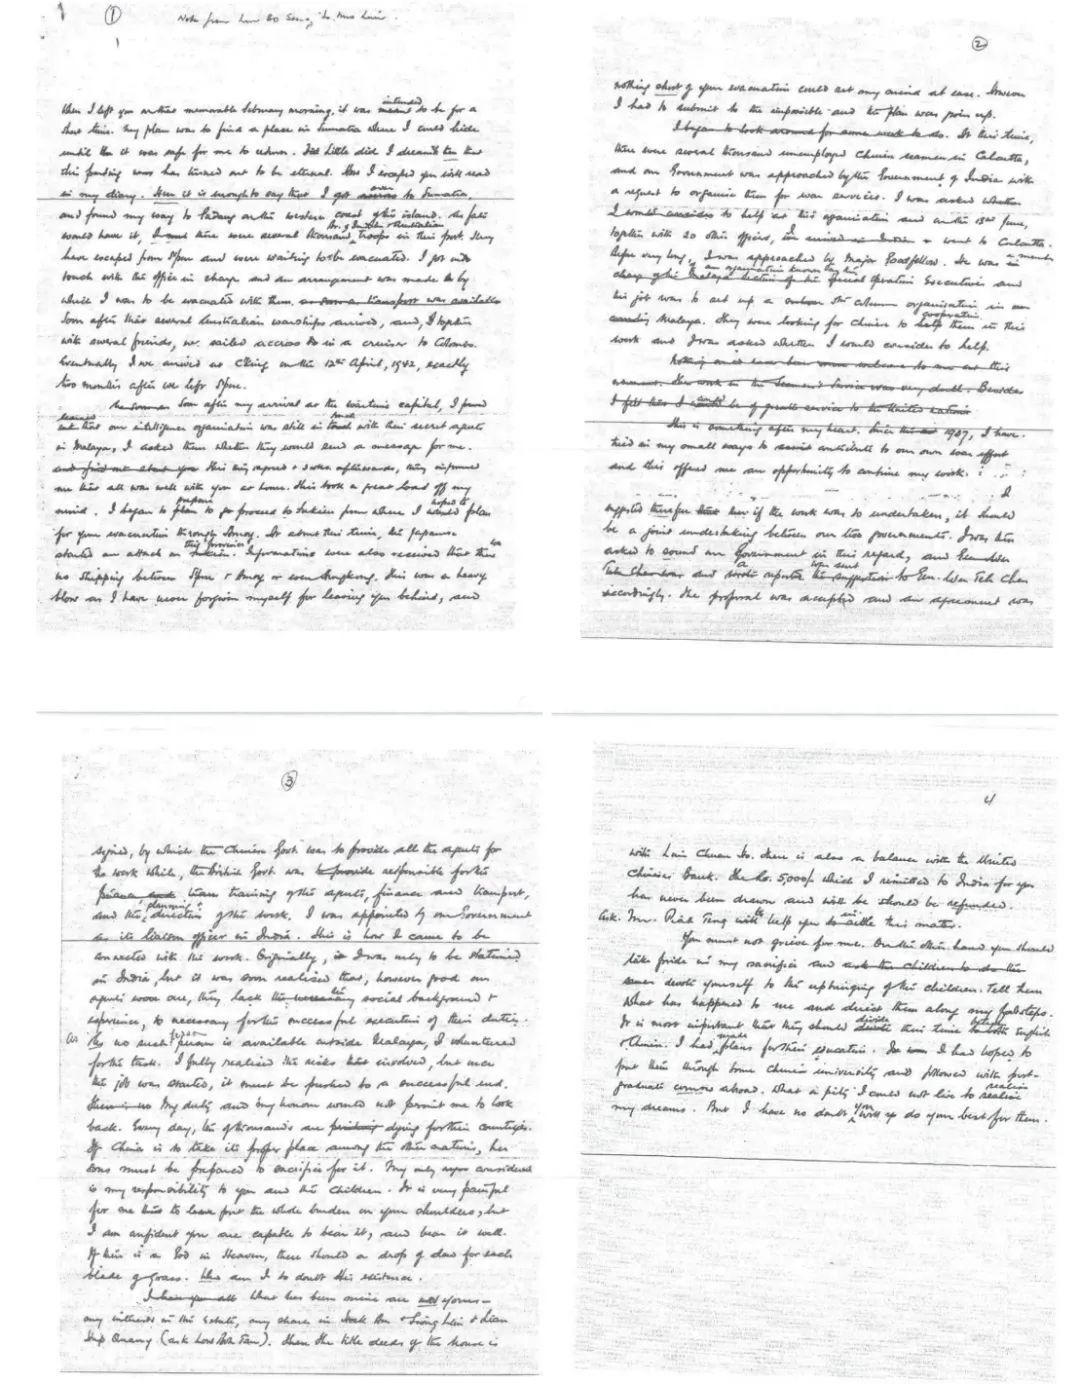 ①
Note from Lim Bo Seng to Mrs Lim.
When I left you on that memorable February morning, it was meant intended to be for a
short time. My plan was to find a place in Sumatra where I could hide
until it was safe for me to return. Little did I dream then that
this parting was has turned out to be eternal. How I escaped you will read
in my diary. Here it is enough to say that I got across over to Sumatra,
and found my way to Padang on the western coast of this island. As fate
would have it, there were several thousand Br. & Australian troops in this port. They
have escaped from S'pore and were waiting to be evacuated. I got into
touch with the officer in charge and an arrangement was made by
which I was to be evacuated with them. as soon as transport was available
Soon after that several Australian warships arrived, and, I together
with several friends, sailed across in a cruiser to Colombo.
Eventually I arrived at C'king on the 12th April, 1942, exactly
two months after we left S'pore.
Soon after my arrival at the wartime capital, I found
learned that our intelligence organisation was still in touch with their secret agents
in Malaya, I asked them whether they would send a message for me.
and find out about you This they agreed & soon afterwards, they informed
me that all was well with you at home. This took a great load off my
mind. I began to plan prepare to proceed to Fukien from where I would hoped to plan
for your evacuation through Amoy. At about this time, the Japanese
started an attack on Fukien this province. Informations were also received that there was
no shipping between S'pore & Amoy or even Hongkong. This was a heavy
blow as I have never forgiven myself for leaving you behind, and
②
nothing short of your evacuation could set my mind at ease. However
I had to submit to the impossible and the plan was given up.
I began to look around for some work to do. At this time,
there were several thousand unemployed Chinese seamen in Calcutta,
and our Government was approached by the Government of India with
a request to organise them for war services. I was asked whether
I would consider to help in this organisation and on the 13th June,
together with 20 other officers, I arrived in India went to Calcutta.
Before very long, I was approached by Major Goodfellow. He was a member
in charge of the Malaya Section of the an organisation known as the Special Operation Executive and
his job was to set up a 5th column organisation in
Malaya. They were looking for Chinese to help cooperation them in this
work and I was asked whether I would consider to help.
Nothing could have been more welcome to me at this
moment. The work in the Seamen's Service was very dull. Besides
I felt that I could be of greater service to the United Nations
This is something after my heart. Since 1937, I have
tried in my small ways to assist contribute to our own war effort
and this offered me an opportunity to continue my work. I
suggested therefore that if the work was to undertaken, it should
be a joint undertaking between our two governments. I was then
asked to sound our Government in this regard, and
and wrote a report was sent the suggestion to Gen. Wan Teh Chen
accordingly. The proposal was accepted and an agreement was
③
signed, by which the Chinese Govt. was to provide all the agents for
the work while, the British Govt. was to provide responsible for the
finance and training of the agents, finance and transport,
and the planning & direction of the work. I was appointed by our Government
as its liaison officer in India. This is how I came to be
connected with the work. Originally, I was only to be stationed
in India, but it was soon realised that, however good our
agents are, they lack the necessary the social background &
experience, so necessary for the successful execution of their duty.
As no such person is available outside Malaya, I volunteered
for the task. I fully realised the risks involved, but once
the job was started, it must be pushed to a successful end.
My duty and my honour would not permit me to look
back. Every day, tens of thousands are dying for their countries.
If China is to take its proper place among the other nations, her
sons must be prepared to sacrifice for it. My only consideration
is my responsibility to you and the children. It is very painful
for me thus to leave the whole burden on your shoulders, but
I am confident you are capable to bear it, and bear it well.
If there is a God in Heaven, there should a drop of dew for each
blade of grass. Who am I to doubt His existence.
What has been mine are now yours—
my interests in the Estate, my shares in Hock Ann & Siong Lim & Lian
Hup Quarry (ask Low Poh Tan). Then the title deeds of the house is
4
with Lim Chuan Ho. There is also a balance with the United
Chinese Bank. The Rs. 5,000/- which I remitted to India for you
has never been drawn and should be refunded.
Ask Mr. Piah Teng to help you settle this matter.
You must not grieve for me. On the other hand you should
take pride in my sacrifice and ask the children to do the
same devote yourself to the upbringing of the children. Tell them
what has happened to me and direct them along my footsteps.
It is most important that they should devote divide their time between English
& Chinese. I had made plans for their education. I had hoped to
put them through some Chinese university and followed with post-
graduate course abroad. What a pity I could not live to realise
my dreams. But I have no doubt you will do your best for them.